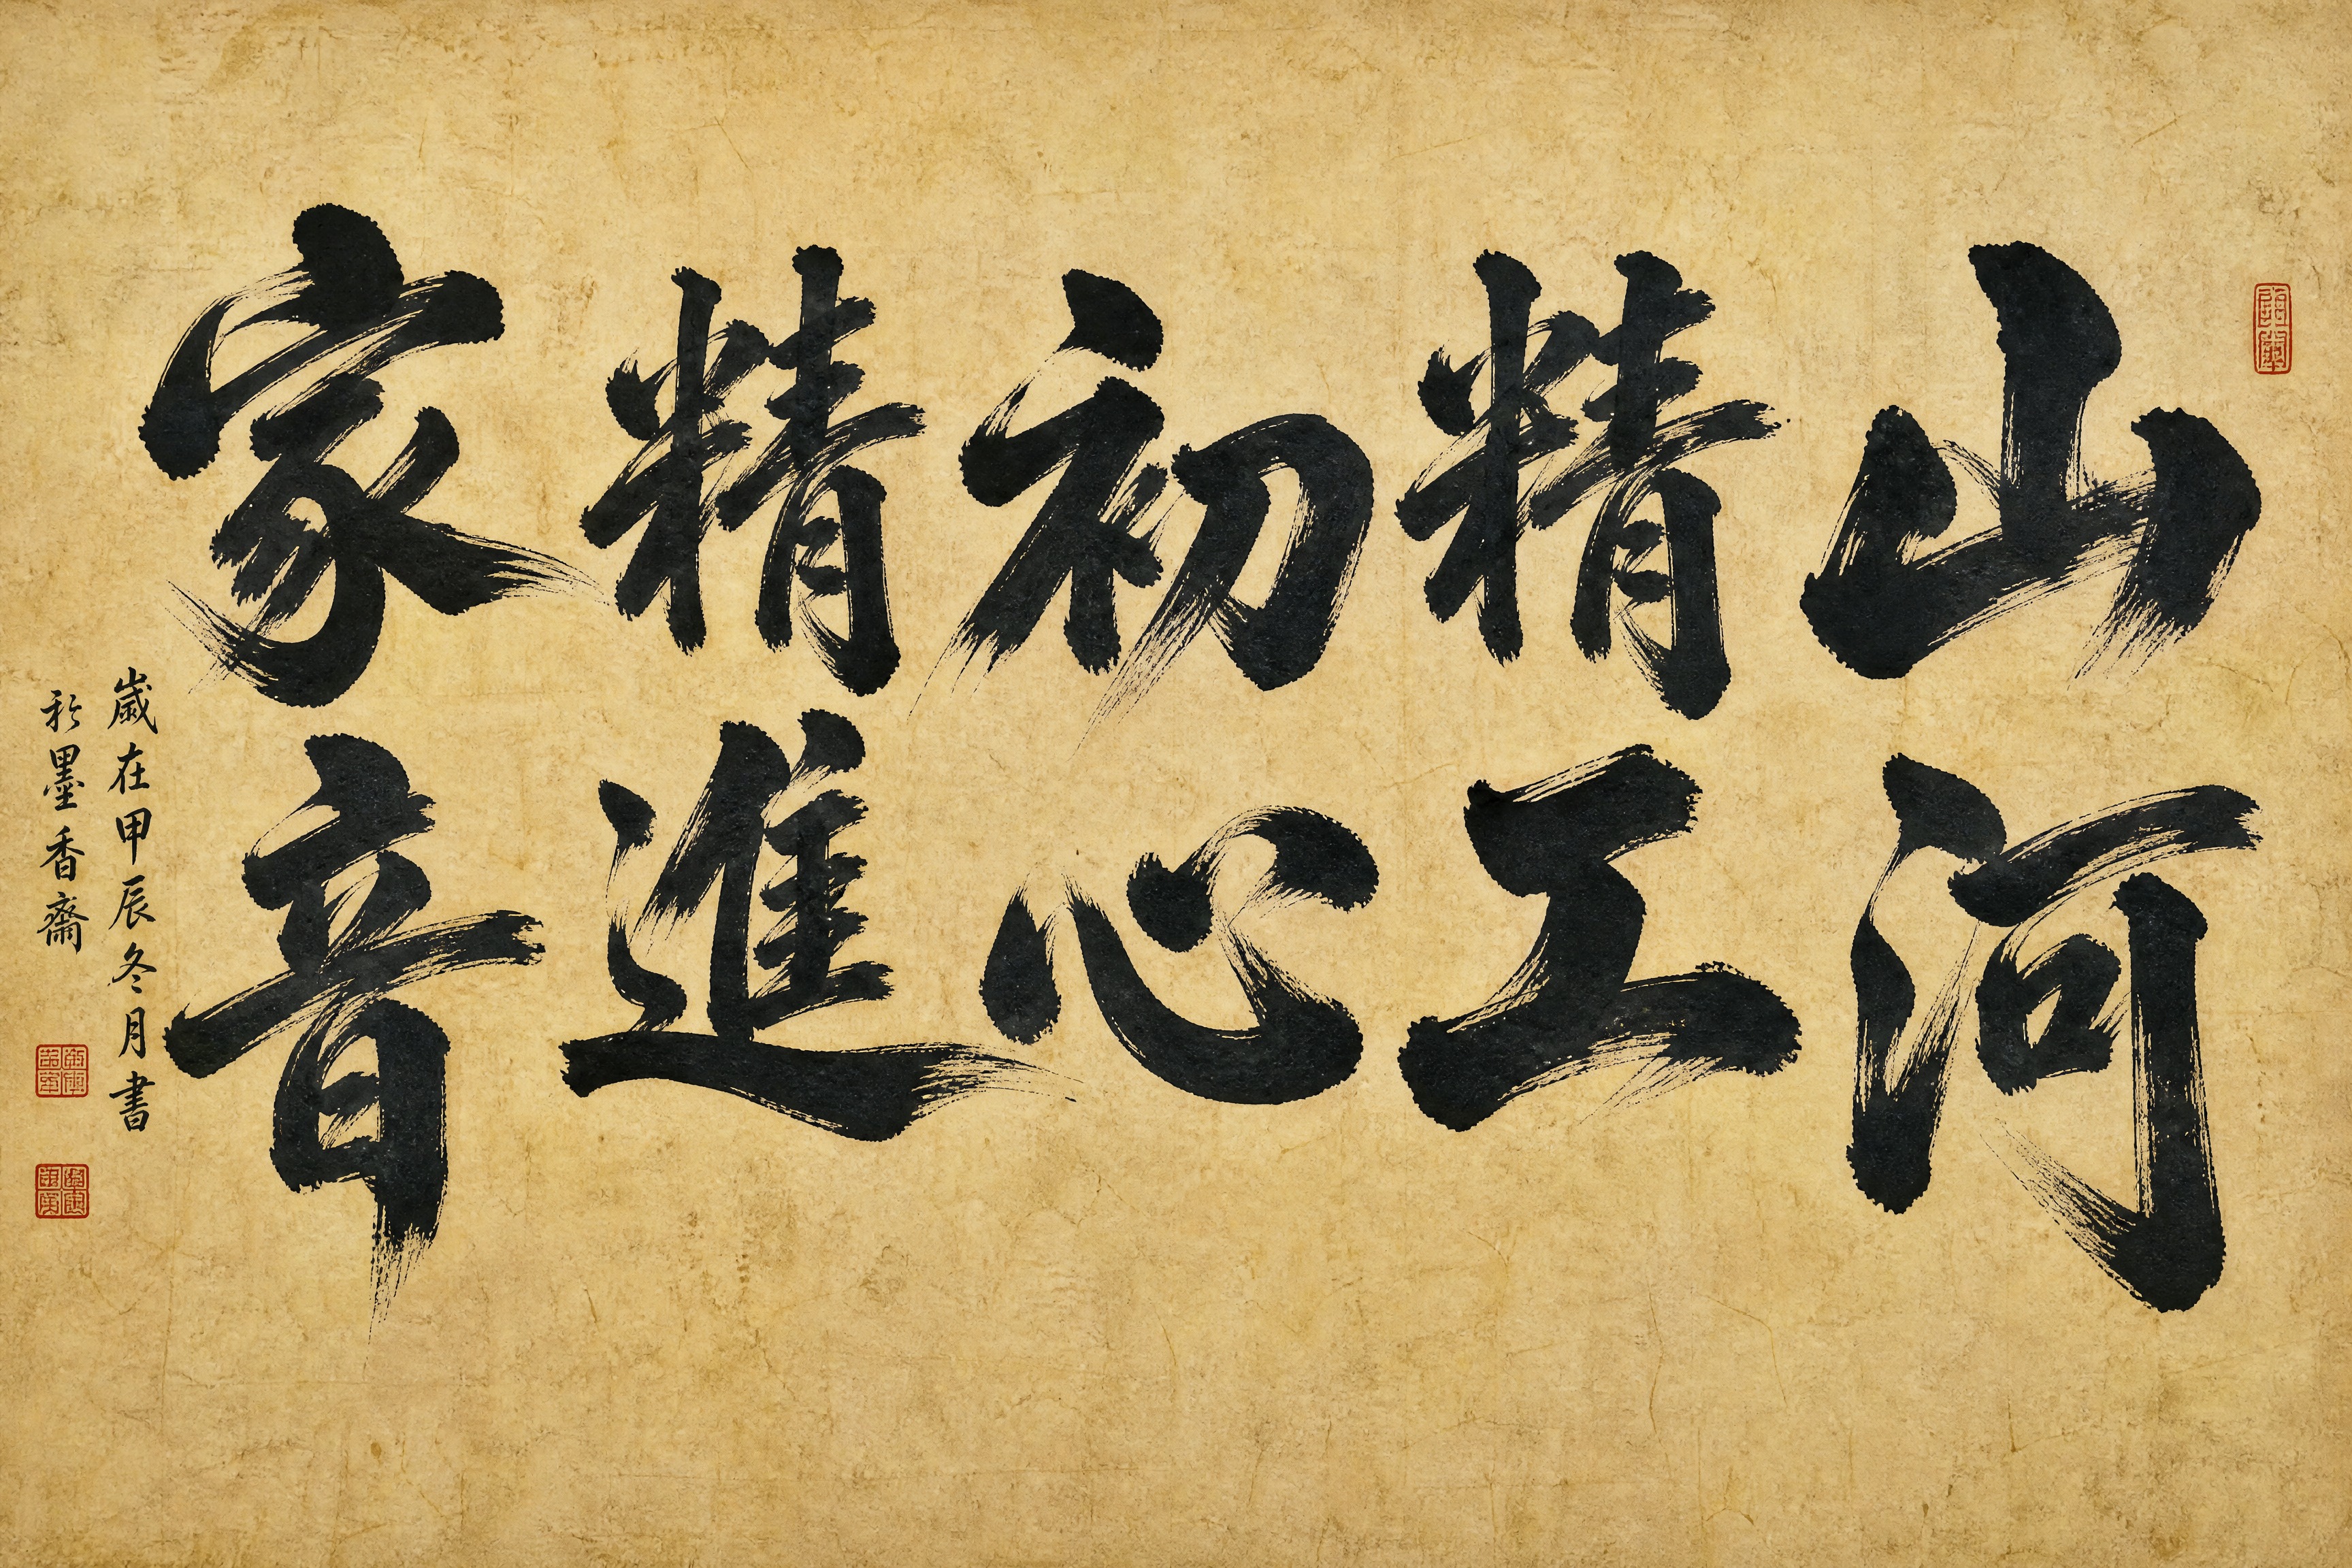 山河
精工
初心
精進
家音
歲在甲辰冬月書
於墨香齋